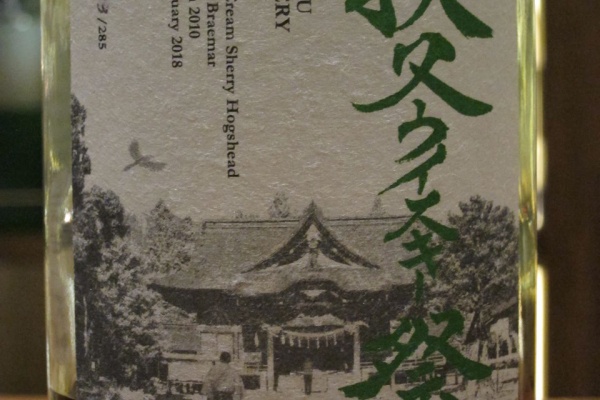 秩父ウイスキー祭
U
ERY
Cream Sherry Hogshead
Braemar
2010
uary 2018
3/285